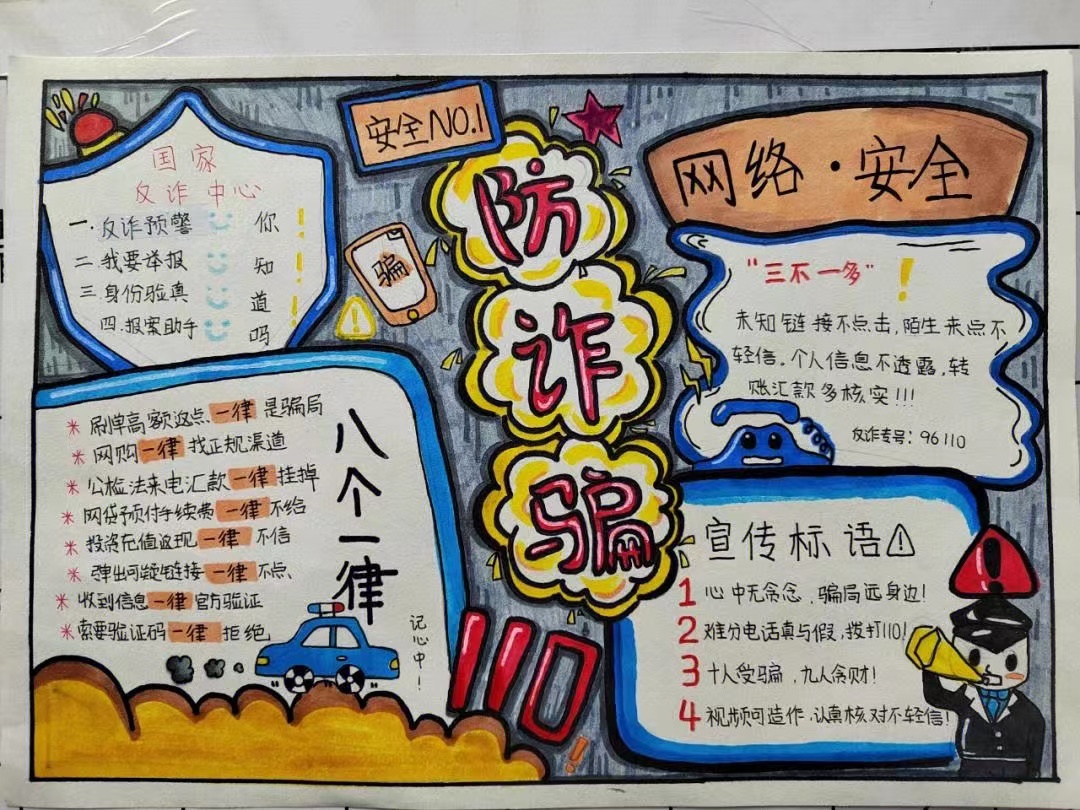 安全NO.1
防诈骗
骗
国家
反诈中心
一.反诈预警
二.我要举报
三.身份验真
四.报案助手
你知道吗
!
!
!
网络·安全
"三不一多"!
未知链接不点击,陌生来点不
轻信.个人信息不透露,转
账汇款多核实!!!
反诈专号:96110
八个一律
刷单高额返点一律是骗局
网购一律找正规渠道
公检法来电汇款一律挂掉
网贷预付手续费一律不给
投资充值返现一律不信
弹出可疑链接一律不点
收到信息一律官方验证
索要验证码一律拒绝
记心中!
110!
宣传标语
1 心中无贪念,骗局远身边!
2 难分电话真与假,拨打110!
3 十人受骗,九人贪财!
4 视频可造作,认真核对不轻信!